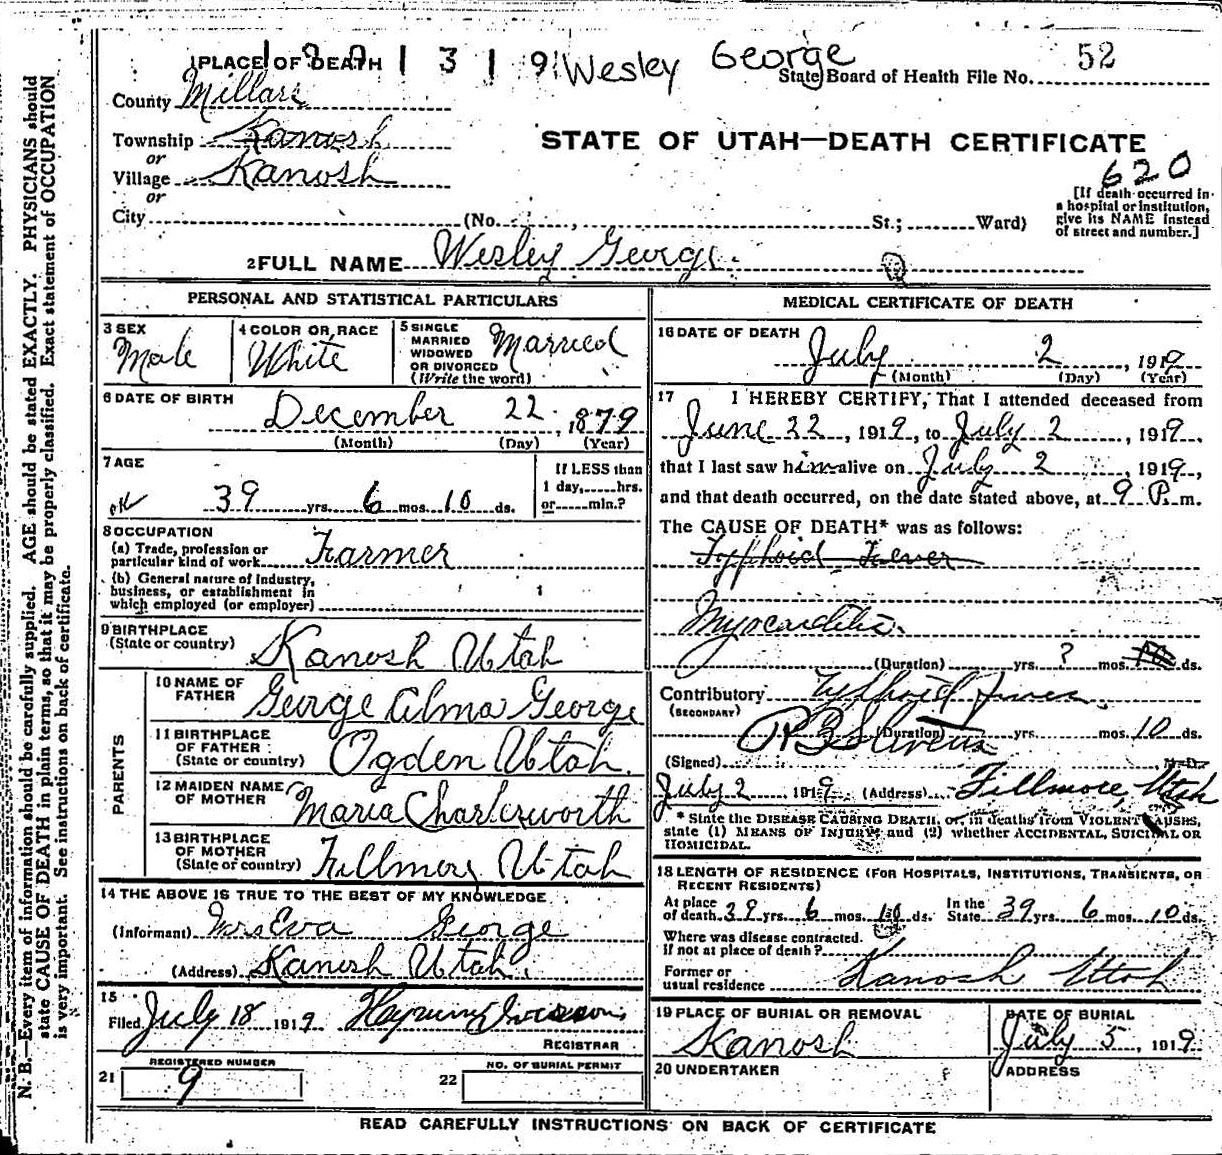 1 PLACE OF DEATH 1 3 1 9 Wesley George 52
State Board of Health File No.
County Millard
Township Kanosh
or
Village Kanosh
or
City (No. , St.; Ward)
STATE OF UTAH—DEATH CERTIFICATE
620
[If death occurred in
a hospital or institution,
give its NAME instead
of street and number.]
2 FULL NAME Wesley George.
PERSONAL AND STATISTICAL PARTICULARS
3 SEX
Male
4 COLOR OR RACE
White
5 SINGLE
MARRIED
WIDOWED
OR DIVORCED
(Write the word)
Married
6 DATE OF BIRTH
December 22 , 1879
(Month) (Day) (Year)
7 AGE
39 yrs. 6 mos. 10 ds.
If LESS than
1 day, hrs.
or min.?
8 OCCUPATION
(a) Trade, profession or
particular kind of work Farmer
(b) General nature of Industry,
business, or establishment in
which employed (or employer)
9 BIRTHPLACE
(State or country) Kanosh Utah
PARENTS
10 NAME OF
FATHER George Alma George
11 BIRTHPLACE
OF FATHER
(State or country) Ogden Utah.
12 MAIDEN NAME
OF MOTHER Maria Charlesworth
13 BIRTHPLACE
OF MOTHER
(State or country) Fillmore Utah
14 THE ABOVE IS TRUE TO THE BEST OF MY KNOWLEDGE
(Informant) Mrs Eva George
(Address) Kanosh Utah.
15
Filed July 18 1919
REGISTRAR
REGISTERED NUMBER
21 9
NO. OF BURIAL PERMIT
22
MEDICAL CERTIFICATE OF DEATH
16 DATE OF DEATH
July 2 , 1919
(Month) (Day) (Year)
17 I HEREBY CERTIFY, That I attended deceased from
June 22 , 1919, to July 2 , 1919,
that I last saw him alive on July 2 , 1919,
and that death occurred, on the date stated above, at 9 P. m.
The CAUSE OF DEATH* was as follows:
Typhoid Fever
Myocarditis.
(Duration) yrs. ? mos. ds.
Contributory Typhoid Fever.
(SECONDARY)
(Duration) yrs. mos. 10 ds.
(Signed) R B Stevens , M. D.
July 2 , 1919. (Address) Fillmore, Utah
* State the DISEASE CAUSING DEATH, or, in deaths from VIOLENT CAUSES,
state (1) MEANS OF INJURY; and (2) whether ACCIDENTAL, SUICIDAL OR
HOMICIDAL.
18 LENGTH OF RESIDENCE (FOR HOSPITALS, INSTITUTIONS, TRANSIENTS, OR
RECENT RESIDENTS)
At place In the
of death 39 yrs. 6 mos. 10 ds. State 39 yrs. 6 mos. 10 ds.
Where was disease contracted.
if not at place of death?
Former or
usual residence Kanosh Utah
19 PLACE OF BURIAL OR REMOVAL
Kanosh
DATE OF BURIAL
July 5 , 1919
20 UNDERTAKER
ADDRESS
READ CAREFULLY INSTRUCTIONS ON BACK OF CERTIFICATE
N. B.—Every item of information should be carefully supplied. AGE should be stated EXACTLY. PHYSICIANS should
state CAUSE OF DEATH in plain terms, so that it may be properly classified. Exact statement of OCCUPATION
is very important. See instructions on back of certificate.